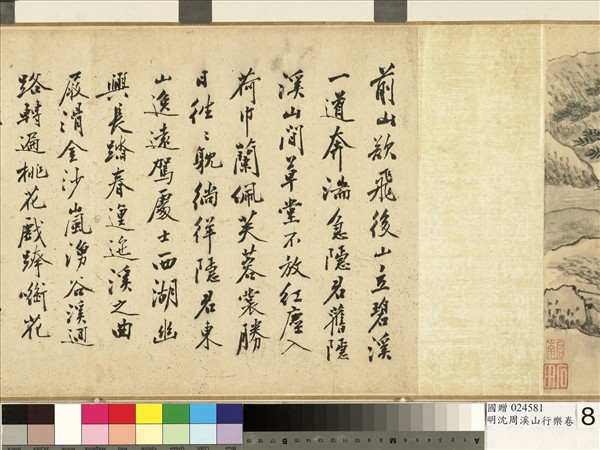 前山欲飛後山立碧溪
一道奔湍急隱君舊隱
溪山間草堂不放紅塵入
荷巾蘭佩芙蓉裳勝
日往〻躭徜徉隱君東
山逸遠駕處士西湖幽
興長踏春邐迤溪之曲
屐滑金沙嵐湧谷溪迴
路轉遍桃花戲躋啣花
國贈 024581
明沈周溪山行樂卷
8